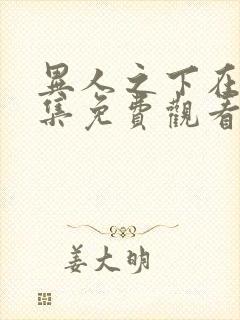 異人之下在
集免費觀看
姜大明